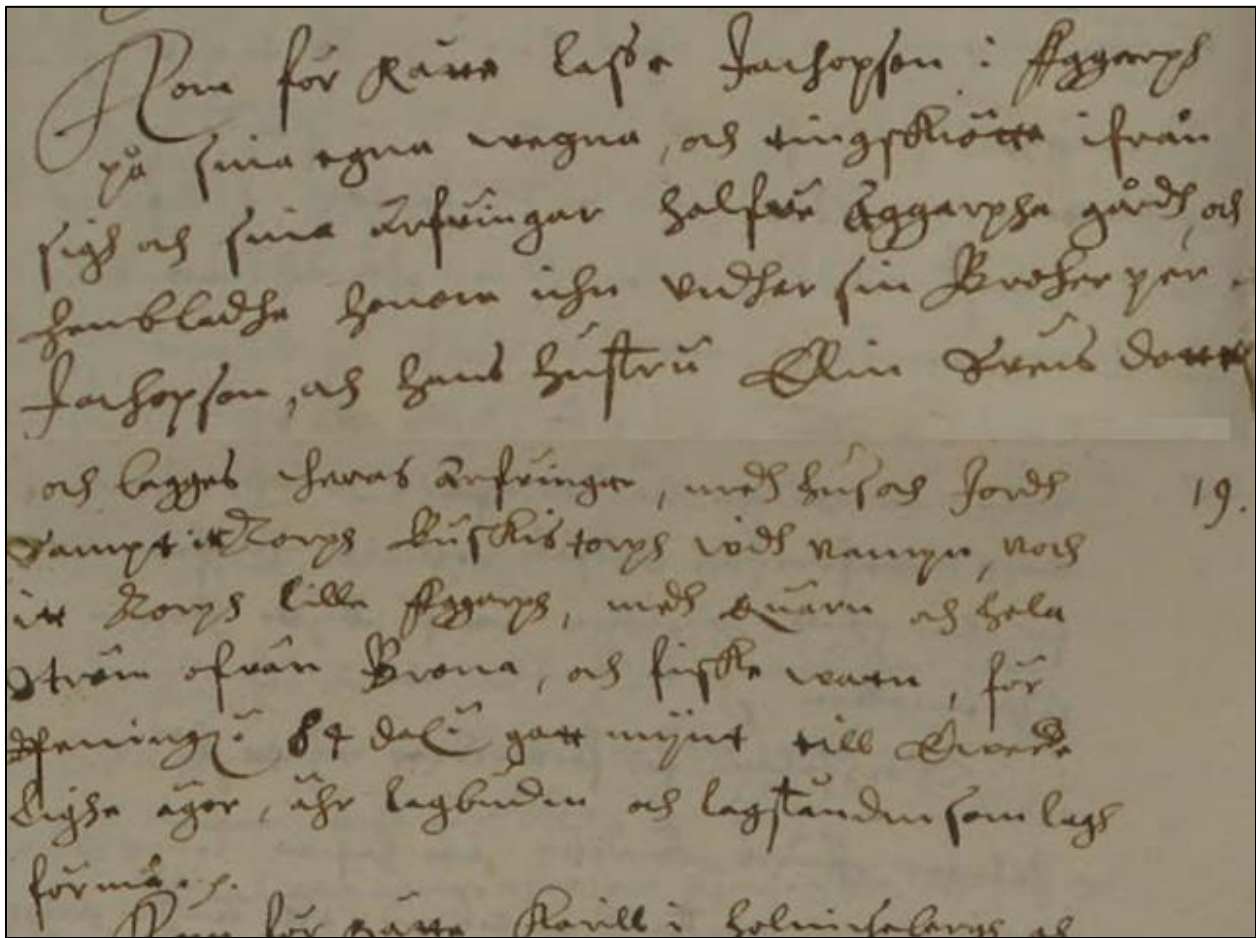 Kom för Rätte Lasse Jachopson i Äggarph
på sina egna wegna, och tingskiötte ifrån
sigh och sina Arfvingar halfve Äggarpha gårdh, och
hembladhe honom ihn vidher sin Broher per
Jachopson, och hans hustru Elin Svens dotter
och begges theras Arfvingar, medh hus och Jordh
19.
sampt itt Torph Buskistorph widh vampn, och
itt Torph Lille Äggarph, medh quarn och hela
ström ofvan Brona, och fiske vatn, för
peningr 84 dalr gott mynt till Ewerde
ligha ägor, ähr lagbudin och lagståndin som lagh
förmå
Kom för Rätte Karill i